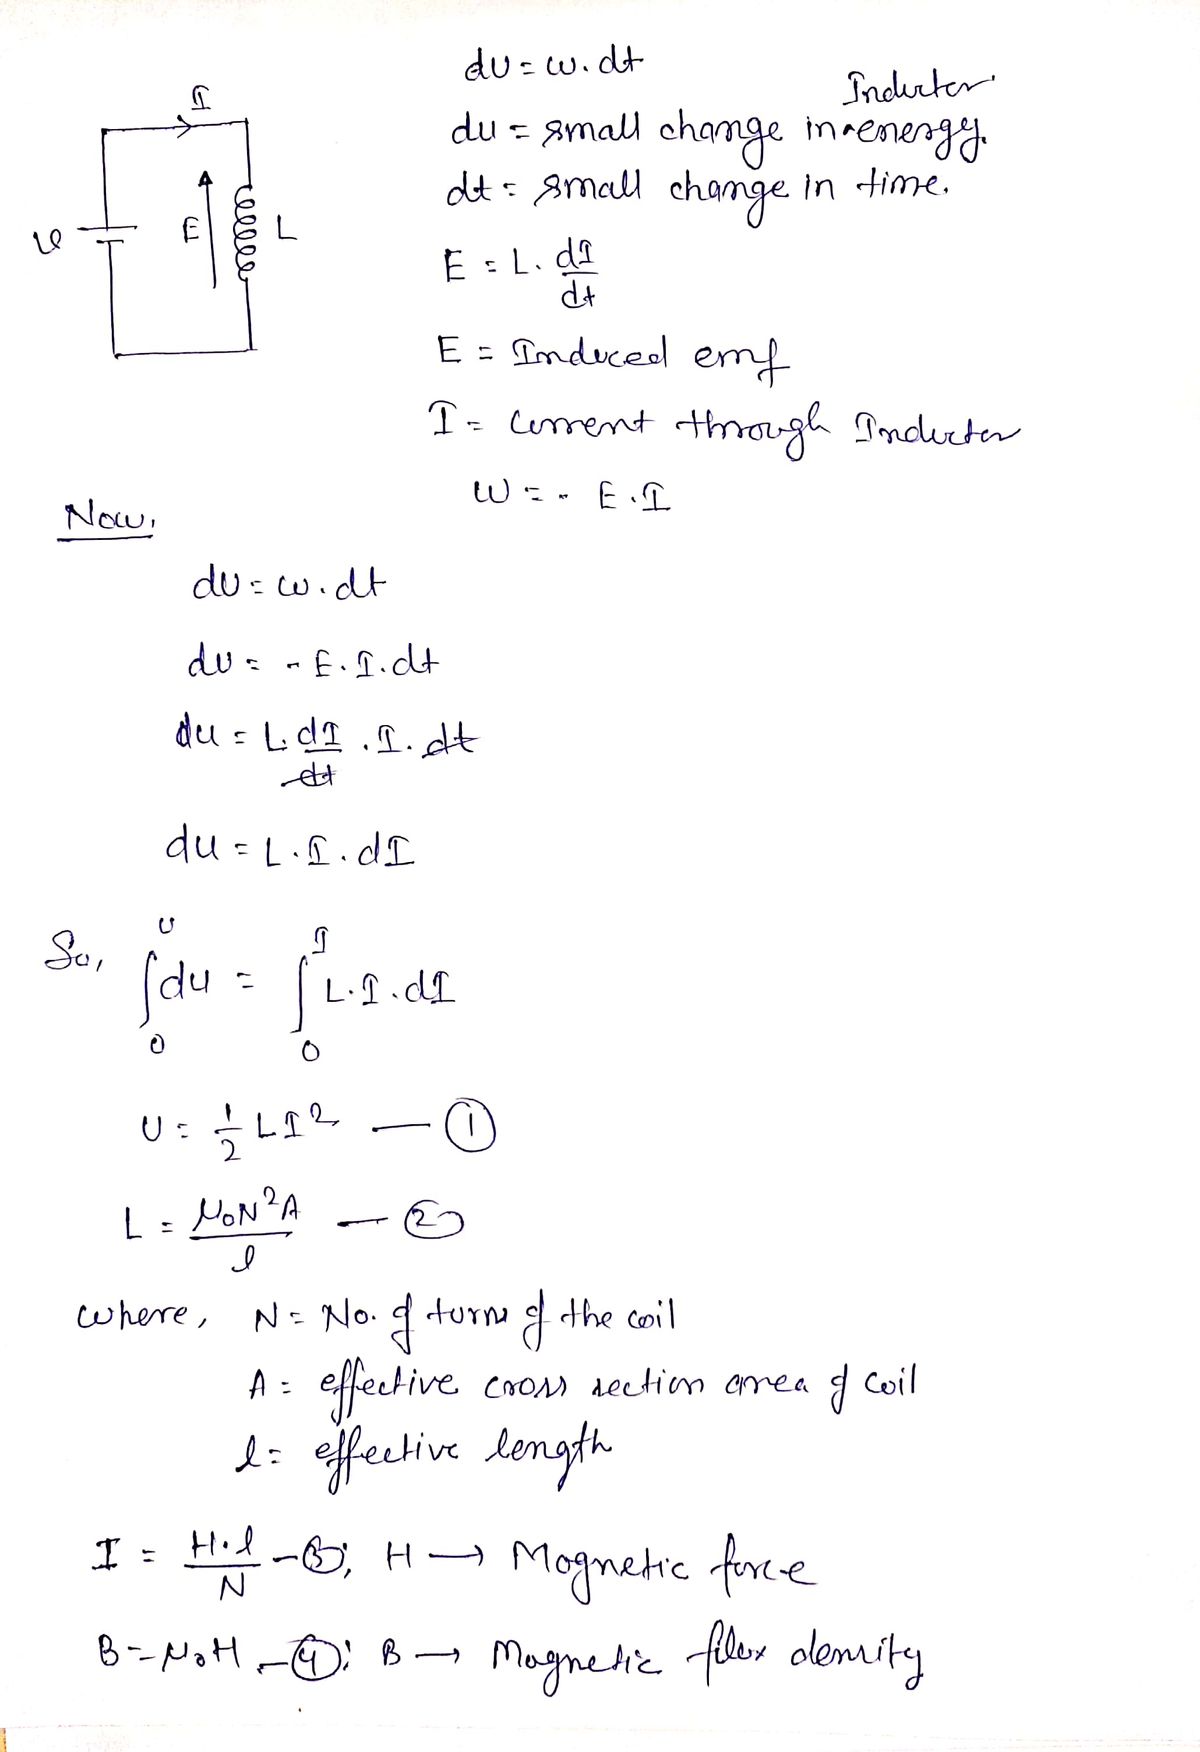 dU = w. dt
Inductor
du = small change in energy.
dt = small change in time.
I
E
L
E = L. dI/dt
E = Induced emf
I = Current through Inductor
W = - E.I
Now,
dU = w. dt
dU = - E. I. dt
du = L. dI/dt . I. dt
du = L. I. dI
So, ∫₀ᵁ du = ∫₀ᴵ L. I. dI
U = 1/2 LI² — ①
L = μ₀N²A/l — ②
where, N = No. of turns of the coil
A = effective cross section area of coil
l = effective length
I = H.l/N - ③; H → Magnetic force
B = μ₀H - ④; B → Magnetic flux density